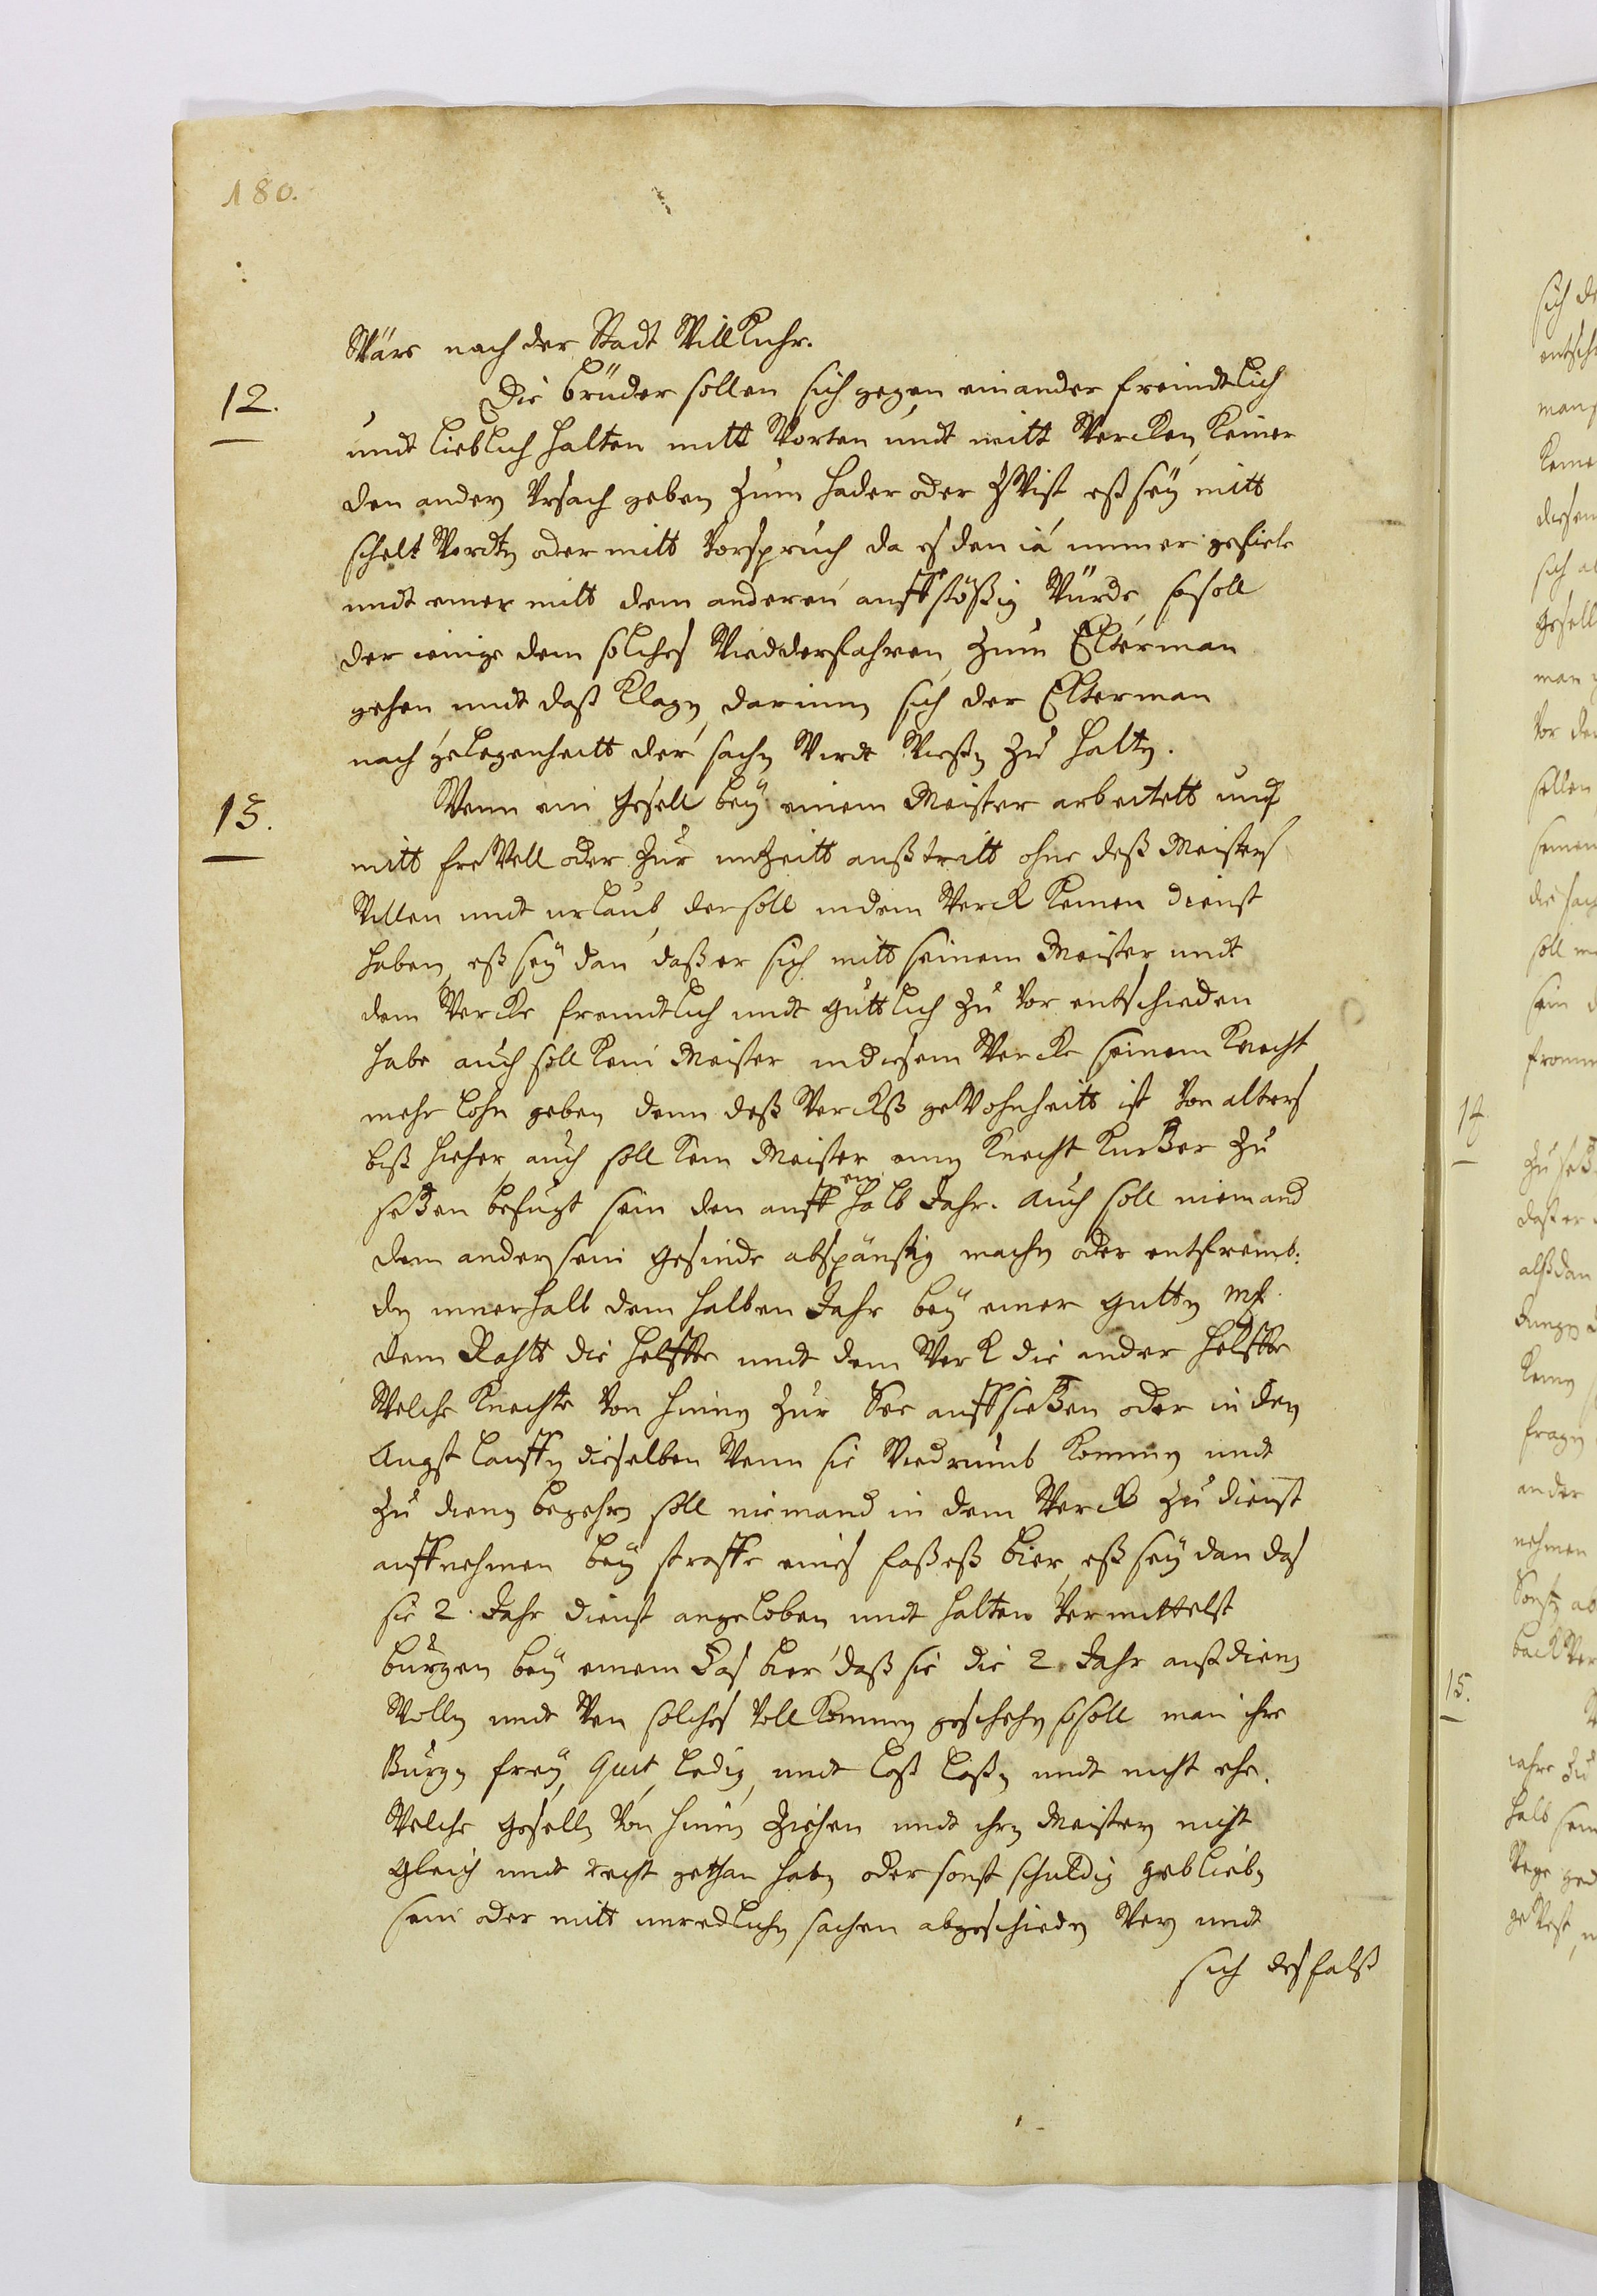 180.
Wäre nach der Stadt Willkuhr.
12. Die brüder sollen sich gegen einander freindtlich
undt lieblich halten mitt Worten undt mitt Wercken, keiner
den andern Vrsach geben zum hader oder ZWist eß seÿ mitt
schelt Wordtn oder mitt Vorspruch da es den iá immer gefiele
undt einer mitt dem anderen auffstößig Würde, so soll
der ienige dem solches Wiedderfahren, zum Elterman
gehen undt daß klagn, darinnen sich der Elterman
nach gelegenheitt der sachn Wirdt Wießn zu haltn.
13. Wenn ein Gesell beÿ einem Meister arbeitett und
mitt freVell oder zur unzeitt außtritt ohne deß Meisters
Willen undt urlaub, der soll in dem Werck keinen dienst
haben, eß seÿ dan daß er sich mitt seinem Meister undt
dem Wercke freundtlich undt güttlich zu Vor entschieden
habe auch soll kein Meister in diesem Wercke seinem knecht
mehr lohn geben denn deß Werckß geWohnheitt ist Von alters
biß hieher, auch soll kein Meister einen knecht kurtzer zu
setzen befugt sein den auff ein halb Jahr. Auch soll niemand
dem andern sein gesinde abspänstig machn oder entfremb:
dn innerhalb dem halben Jahr beÿ einer guttn mk.
dem Rahtt die helffte undt dem Werck die ander helffte
Welche knechte Von hinnen zur See auffsietzen oder in den
Angst lauffn dieselben Wenn sie Wiedrumb kommen undt
zu dienen begehrn soll niemand in dem Werck zu dienst
auffnehmen beÿ straffe eines faßeß bier, eß seÿ dan das
sie 2. Jahr dienst angeloben undt halten Vermittelst
bürgen beÿ einem Las bier daß sie die 2. Jahr außdienen
Wolln undt Wen solches Vollkommen geschehn so soll man ihre
Bürgn freÿ, quit, ledig, undt loß laßn undt nicht ehe.
Welche geselln Von hinnen ziehen undt ihrn Meistern nicht
gleich undt recht gethan habn oder sonst schuldig gebliebn
sein oder mitt unredlichn sachen abgeschiedn Wern undt
sich desfalß
14.
15.